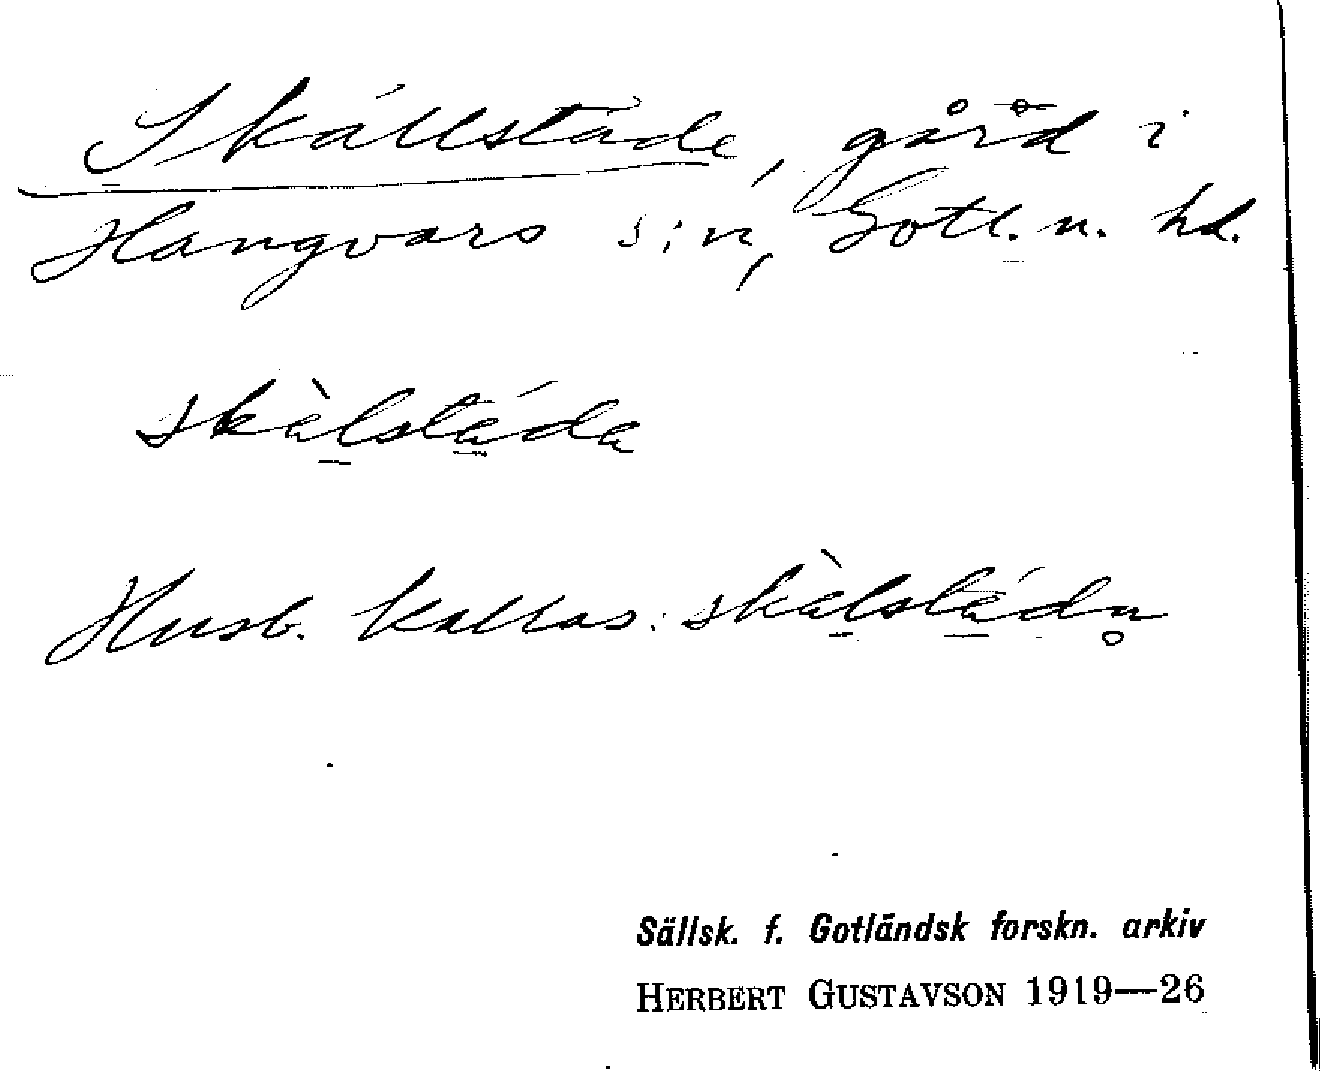 Skällstäde, gård i
Hangvars s:n, Gotl. n. hd.
skàlstáda
Husb. kallas: skàlstádn̥
Sällsk. f. Gotländsk forskn. arkiv
HERBERT GUSTAVSON 1919—26